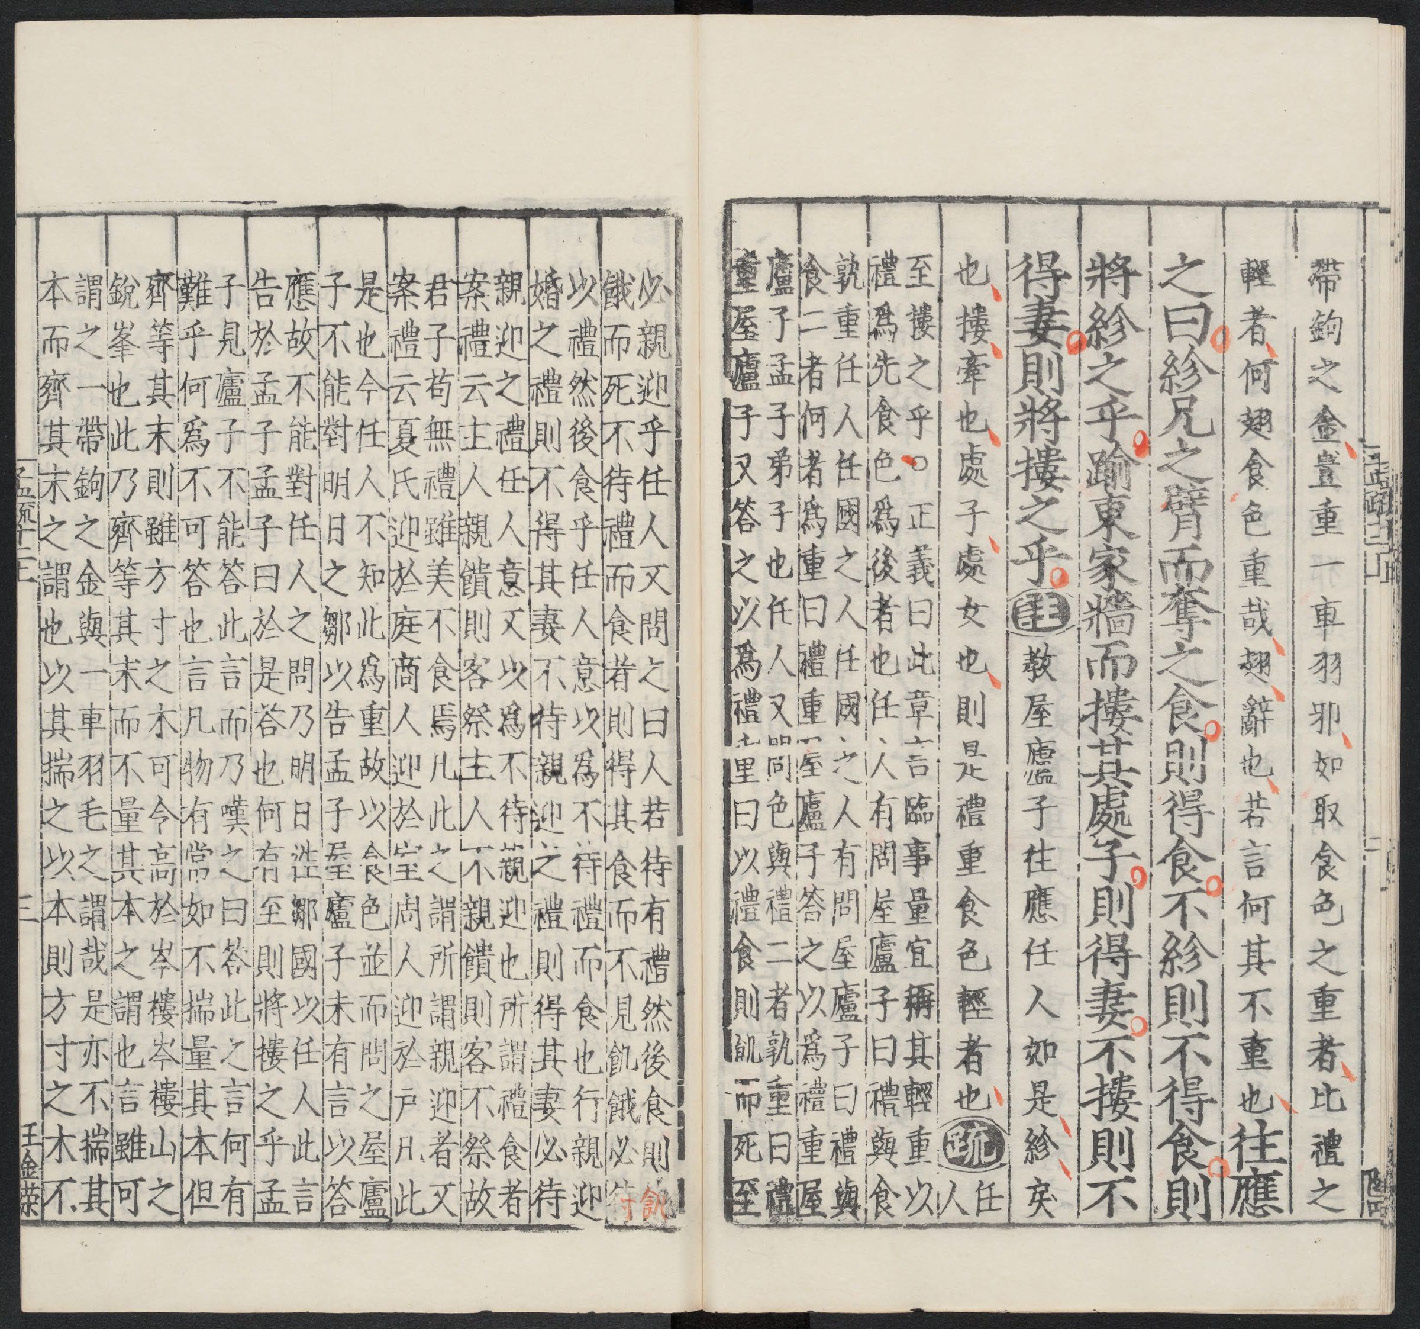 帶鉤之金豈重一車羽邪如取食色之重者比禮之
輕者何翅食色重哉翅辭也若言何其不重也往應
之曰紾兄之臂而奪之食則得食不紾則不得食則
將紾之乎踰東家牆而摟其處子則得妻不摟則不
得妻則將摟之乎注教屋廬子往應任人如是紾戾
也摟牽也處子處女也則是禮重食色輕者也疏任人
至摟之乎○正義曰此章言臨事量宜稱其輕重以
禮爲先食色爲後者也任人有問屋廬子曰禮與食
孰重任人任國之人任國之人有問屋廬子曰禮與
食二者何者爲重曰禮重屋廬子答之以爲禮重屋
廬子孟子弟子也任人又問色與禮二者孰重曰禮
重屋廬子又答之以爲禮重曰以禮食則飢而死至
必親迎乎任人又問之曰人若待有禮然後食則飢
餓而死不待禮而食者則得其食而不見飢餓必待
以禮然後食乎任人意以爲不待禮而食也行親迎
婚之禮則不得其妻不待親迎之禮則得其妻必待
親迎之禮任人意又以爲不待親迎也所謂禮食者
案禮云主人親饋則客祭主人不親饋則客不祭故
君子苟無禮雖美不食焉凡此之謂所謂親迎者又
案禮云夏氏迎於庭商人迎於室周人迎於戶凡此
是也今任人不知此爲重故以食色並而問之屋廬
子不能對明日之鄒以告孟子屋廬子未有言以答
應故不能對任人之問乃明日往鄒國以任人此言
告於孟子孟子曰於是答也何有至則將摟之乎孟
子見廬子不能答此言而乃嘆之曰答此之言何有
難乎何爲不可答也言凡物有常如不揣量其本但
齊等其末則雖方寸之木可令高於岑樓岑樓山之
銳峯也此乃齊等其末而不量其本之謂也言雖可
謂之一帶鉤之金與一車羽毛之謂哉是亦不揣其
本而齊其末之謂也以其揣之以本則方寸之木不
孟疏十二
三
王金榮